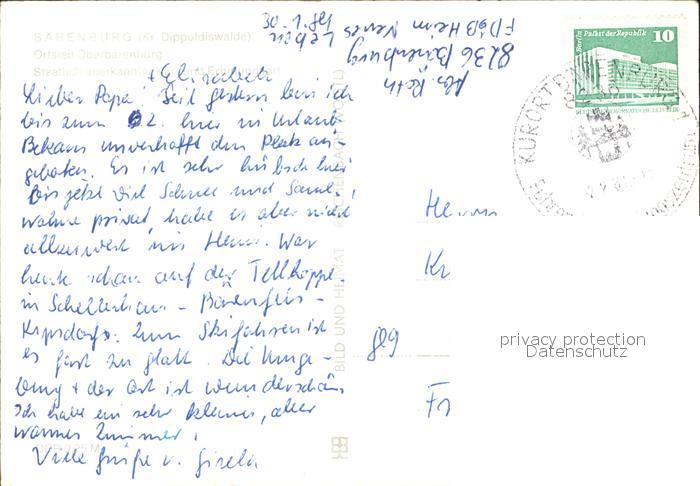 BÄRENBURG (Kr. Dippoldiswalde)
Ortsteil Oberbärenburg
Staatlich anerkannter
30.1.81
Abs. Roth
8236 Bärenburg
FDGB Heim
Berlin Palast der Republik 10
DEUTSCHE DEMOKRATISCHE REPUBLIK
KURORT BÄRENBURG
+ Elisabeth
Lieber Papa! Seit gestern bin ich
bis zum 2. hier in Urlaub.
Bekam unverhofft den Platz an-
geboten. Es ist sehr hübsch hier
bis jetzt viel Schnee und Sonne,
wohne privat, habe es aber nicht
allzuweit ins Heim. War
heute schon auf der Tellkoppe
in Schellerhau - Bärenfels -
Kipsdorf. Zum Skifahren ist
es fast zu glatt. Die Umge-
bung + der Ort ist wunderschön
Ich habe ein sehr kleines, aber
warmes Zimmer!
Viele Grüße v. Gisela
BILD UND HEIMAT
Herrn
Kr
Fr
privacy protection
Datenschutz